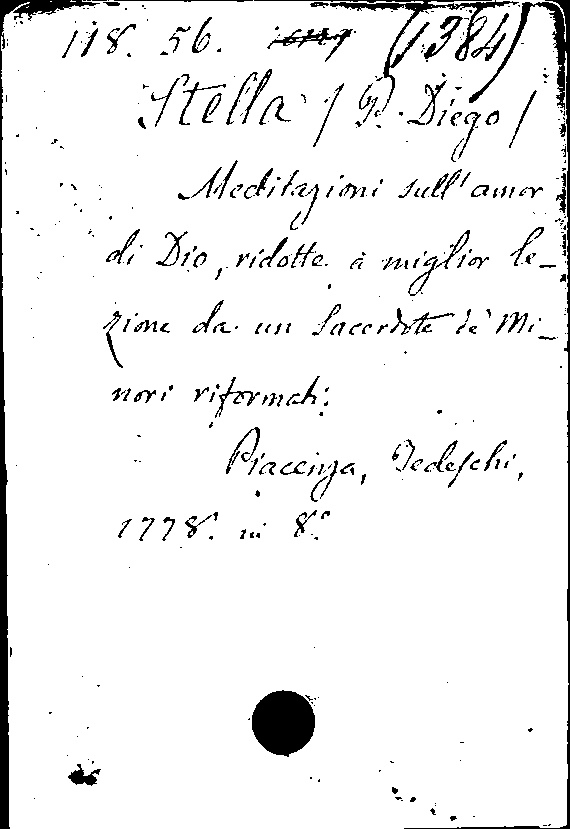 118. 56. (1384)
Stella / P. Diego /
Meditazioni sull'amor
di Dio, ridotte à miglior le-
zione da un Sacerdote de' Mi-
nori riformati.
Piacenza, Tedeschi,
1778. in 8.°